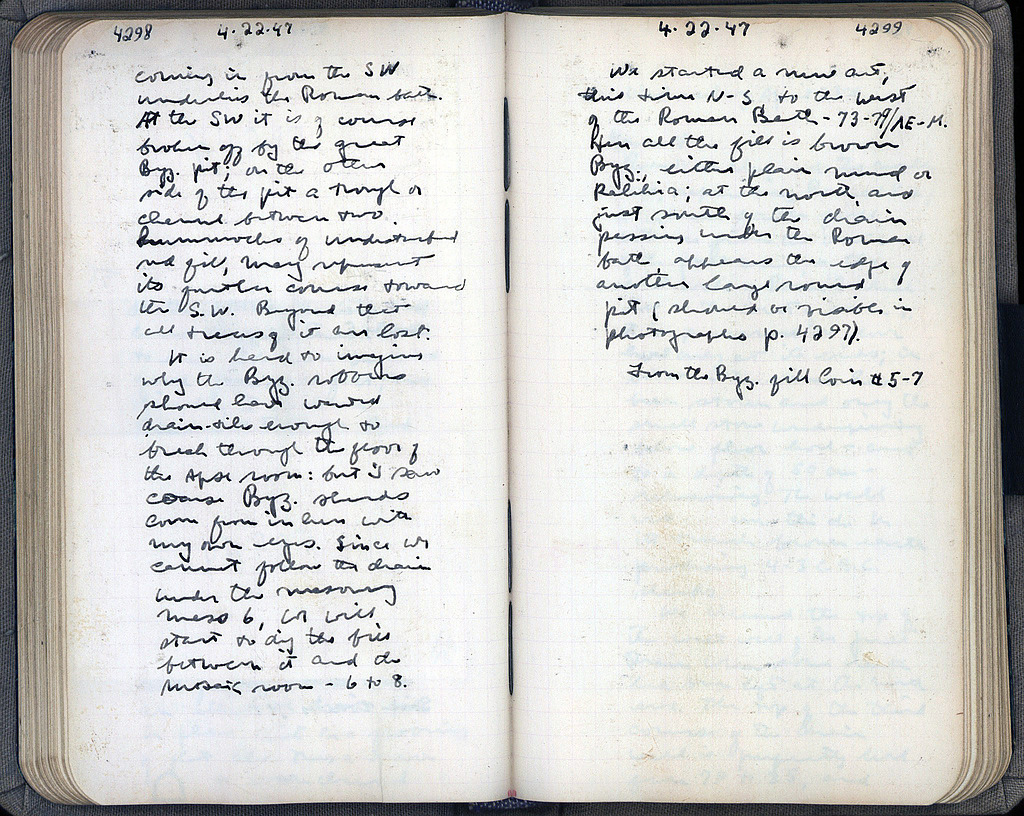 4298 4.22.47
coming in from the SW
underlies the Roman bath.
At the SW it is of course
broken off by the great
Byz. pit; on the other
side of the pit a trough or
channel between two
hummocks of undisturbed
red fill, may represent
its further course toward
the S.W. Beyond that
all traces of it are lost.
It is hard to imagine
why the Byz. robbers
should have wanted
drain-tile enough to
break through the floor of
the Apse room: but I saw
coarse Byz. sherds
come from in here with
my own eyes. Since we
cannot follow the drain
under the masonry
mass 6, we will
start to dig the fill
between it and the
mosaic room - 6 to 8.
4.22.47 4299
We started a new cut,
this time N-S to the west
of the Roman Bath - 73-79/ΛΕ-Μ.
Here all the fill is brown
Byz., either plain mud or
at the north, and
just south of the drain
passing under the Roman
bath, appears the edge of
another large round
pit (should be visible in
photographs p. 4297).
From the Byz. fill Coin #5-7